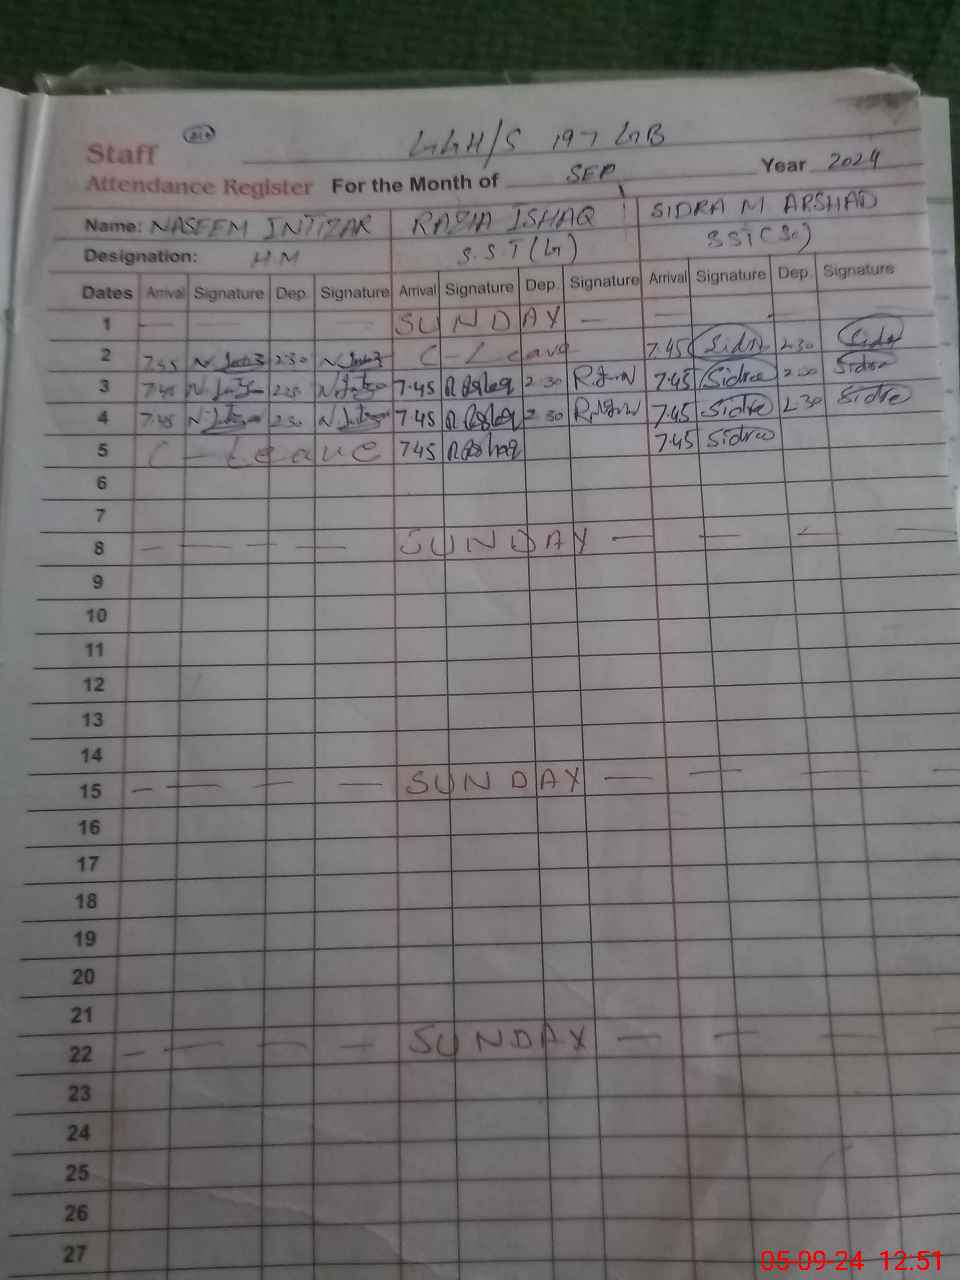 Staff GGH/S 197 GB
Attendance Register For the Month of SEP Year 2024
Name: NASEEM INTIZAR RAZIA ISHAQ SIDRA M ARSHAD
Designation: H.M S.S.T (G) SST (Sc)
Dates Arrival Signature Dep. Signature Arrival Signature Dep. Signature Arrival Signature Dep. Signature
1 — — — SUNDAY — — —
2 7.45 2.30 C-Leave 7.45 Sidra 2.30 Sidra
3 7.45 2.30 7.45 2.30 7.45 Sidra 2.30 Sidra
4 7.45 2.30 7.45 2.30 7.45 Sidra 2.30 Sidra
5 C-Leave 7.45 7.45 Sidra
6
7
8 — — — — SUNDAY — — — —
9
10
11
12
13
14
15 — — — — SUNDAY — — — —
16
17
18
19
20
21
22 — — — — SUNDAY — — — —
23
24
25
26
27
05-09-24 12.51